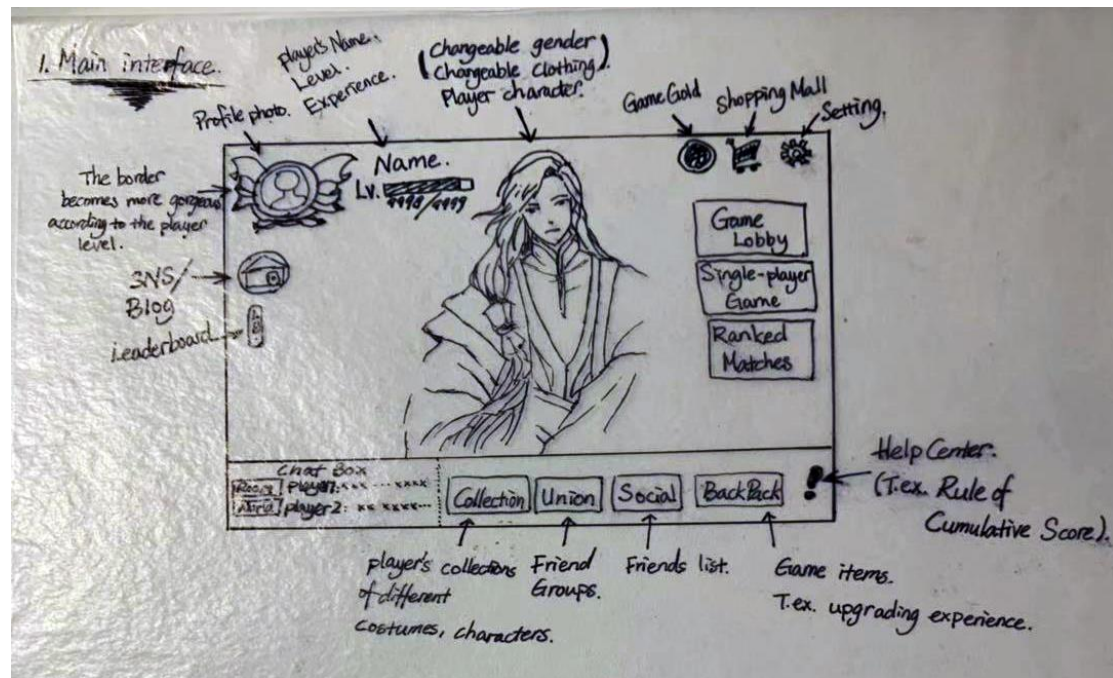 1. Main interface.
player's Name.
Level.
Experience.
(Changeable gender
Changeable Clothing).
Player character.
Profile photo.
Game Gold
Shopping Mall
Setting.
The border
becomes more gorgeous
according to the player
level.
Name.
Lv.
9998/9999
Game
Lobby
SNS/
Blog
Single-player
Game
Leaderboard
Ranked
Matches
Chat Box
Room player1: xx ... xxxx
World player2: xx xxxx...
Collection
Union
Social
BackPack
!
Help Center.
(T.ex. Rule of
Cumulative Score).
player's collections
of different
costumes, characters.
Friend
Groups.
Friends list.
Game items.
T.ex. upgrading experience.